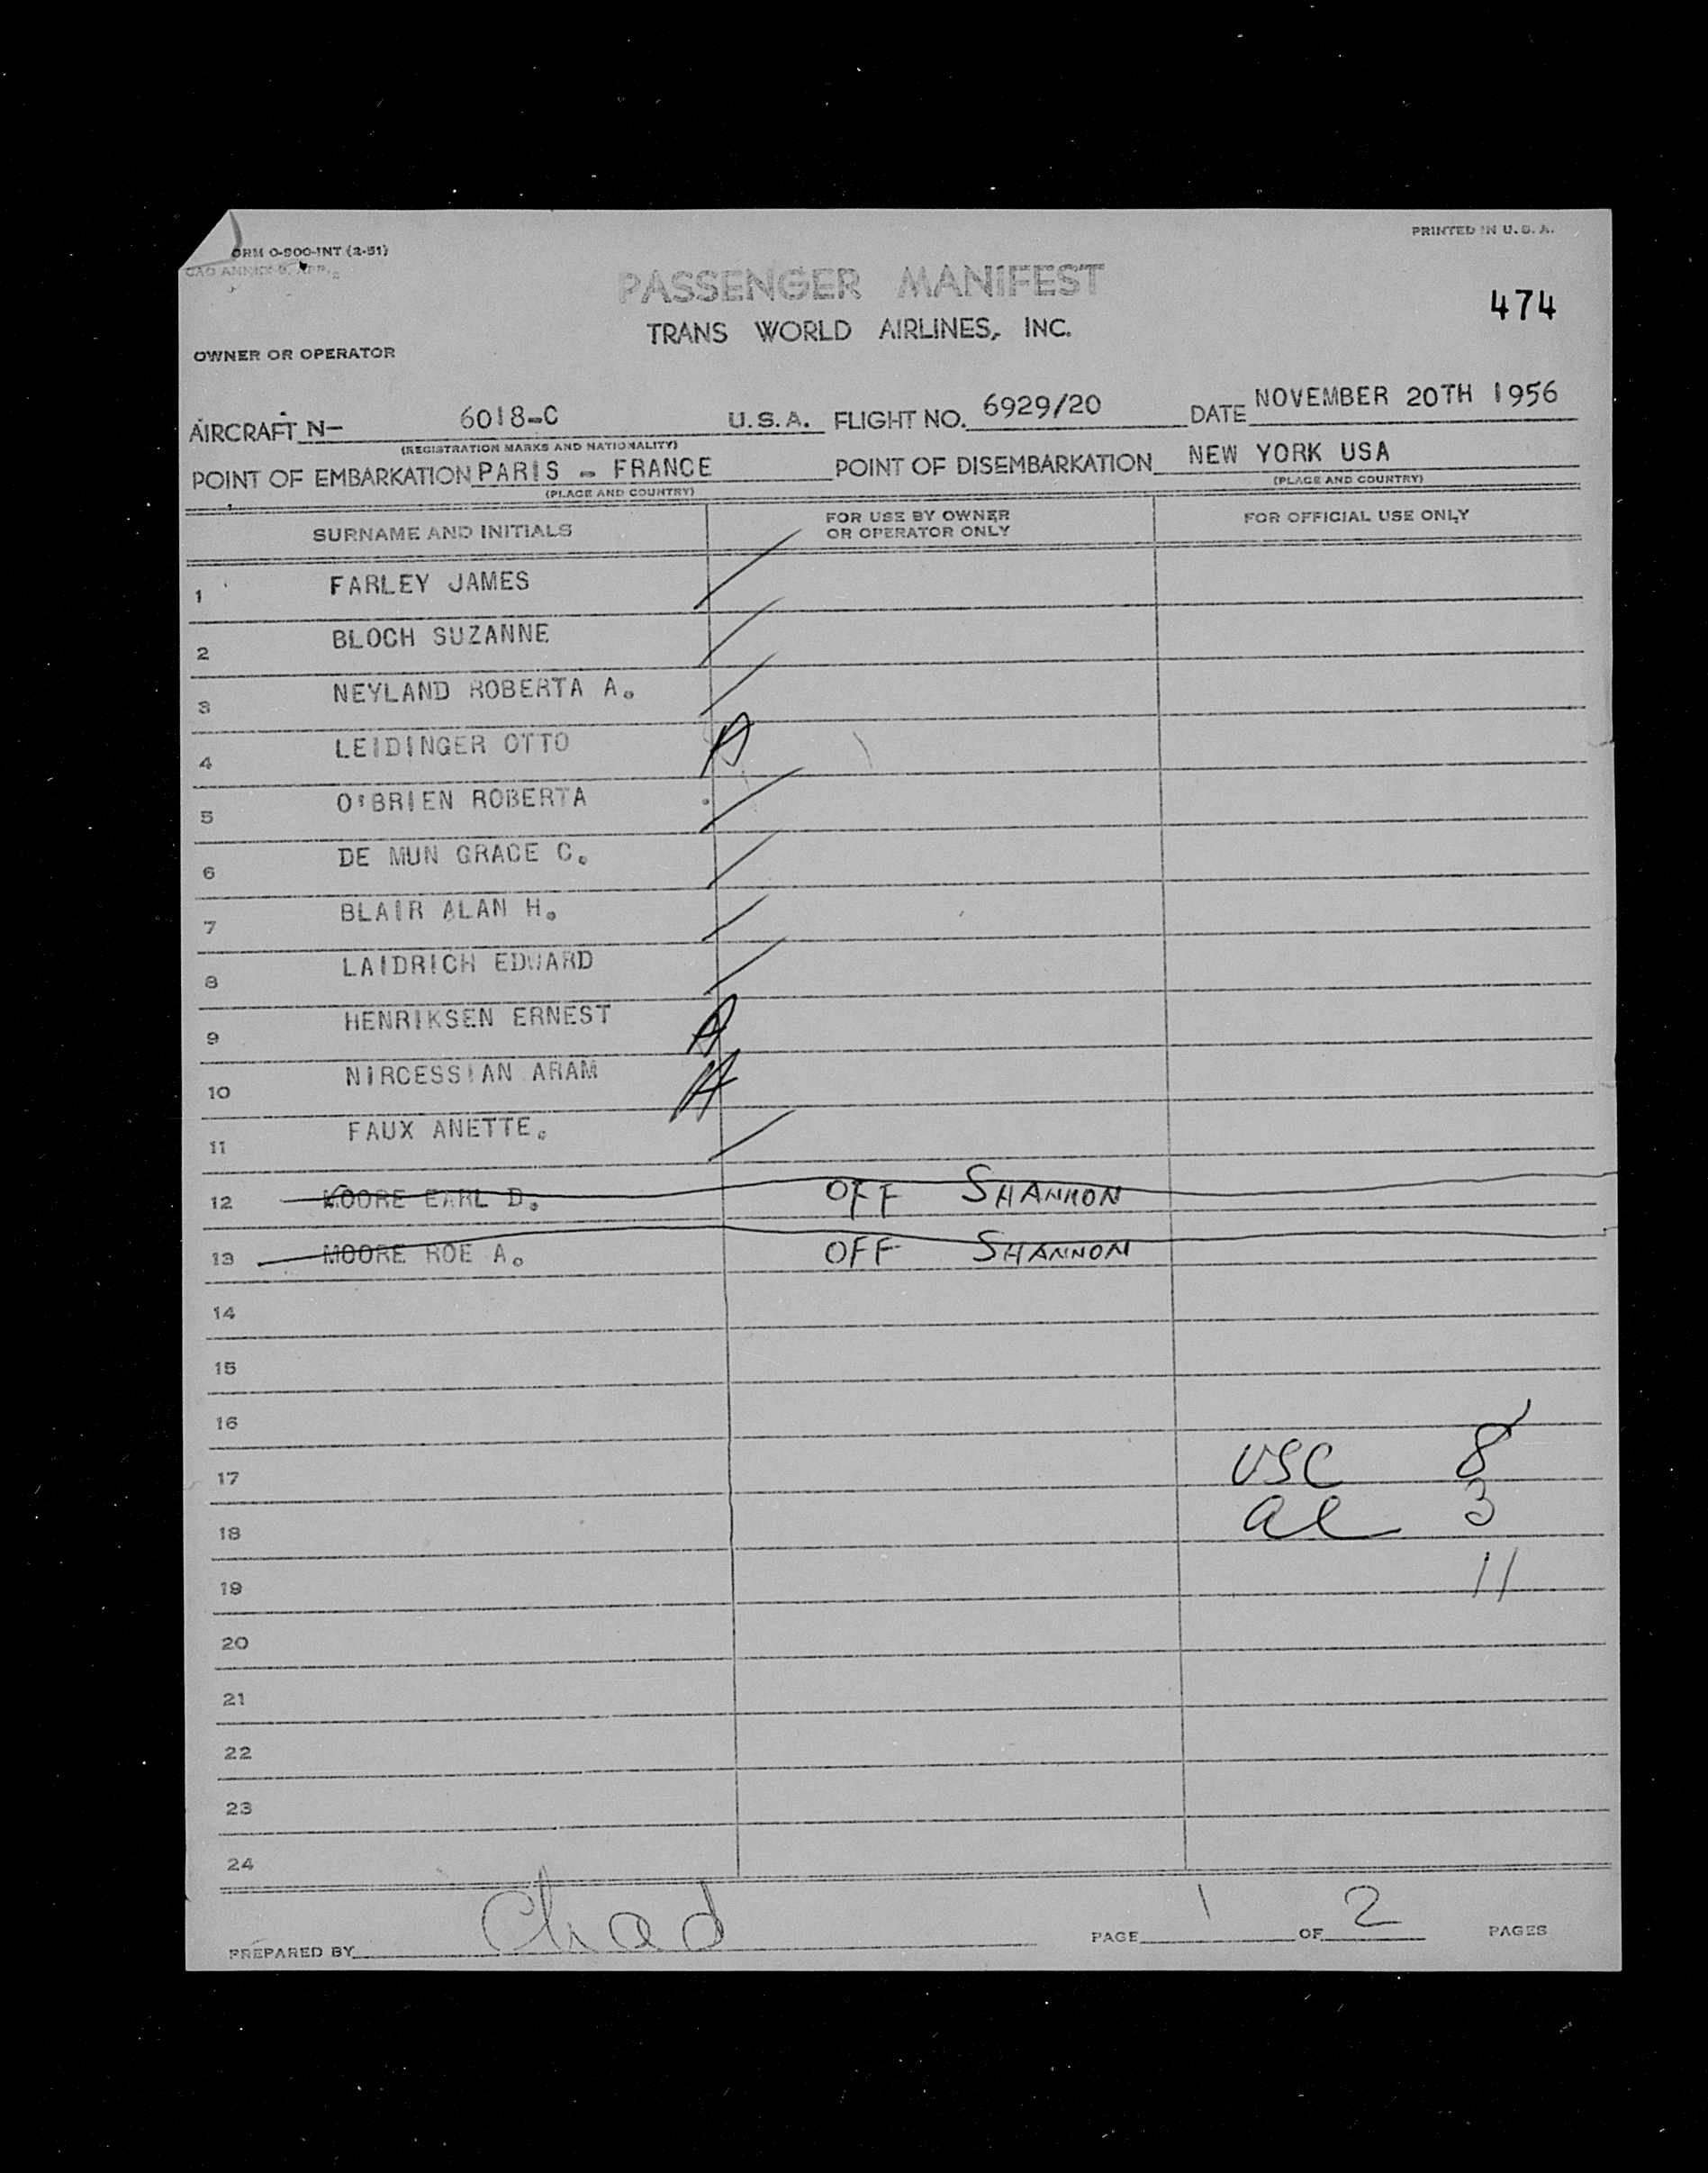 ORM O-900-INT (2-51)
PRINTED IN U.S.A.
PASSENGER MANIFEST
474
TRANS WORLD AIRLINES, INC.
OWNER OR OPERATOR
AIRCRAFT N- 6018-C U.S.A. FLIGHT NO. 6929/20 DATE NOVEMBER 20TH 1956
(REGISTRATION MARKS AND NATIONALITY)
POINT OF EMBARKATION PARIS - FRANCE POINT OF DISEMBARKATION NEW YORK USA
(PLACE AND COUNTRY) (PLACE AND COUNTRY)
SURNAME AND INITIALS FOR USE BY OWNER OR OPERATOR ONLY FOR OFFICIAL USE ONLY
1 FARLEY JAMES
2 BLOCH SUZANNE
3 NEYLAND ROBERTA A.
4 LEIDINGER OTTO A
5 O'BRIEN ROBERTA
6 DE MUN GRACE C.
7 BLAIR ALAN H.
8 LAIDRICH EDWARD
9 HENRIKSEN ERNEST A
10 NIRCESSIAN ARAM A
11 FAUX ANETTE.
12 MOORE EARL D. OFF SHANNON
13 MOORE ROE A. OFF SHANNON
14
15
16
17 USC 8
18 al 3
19 11
20
21
22
23
24
PREPARED BY Chad PAGE 1 OF 2 PAGES